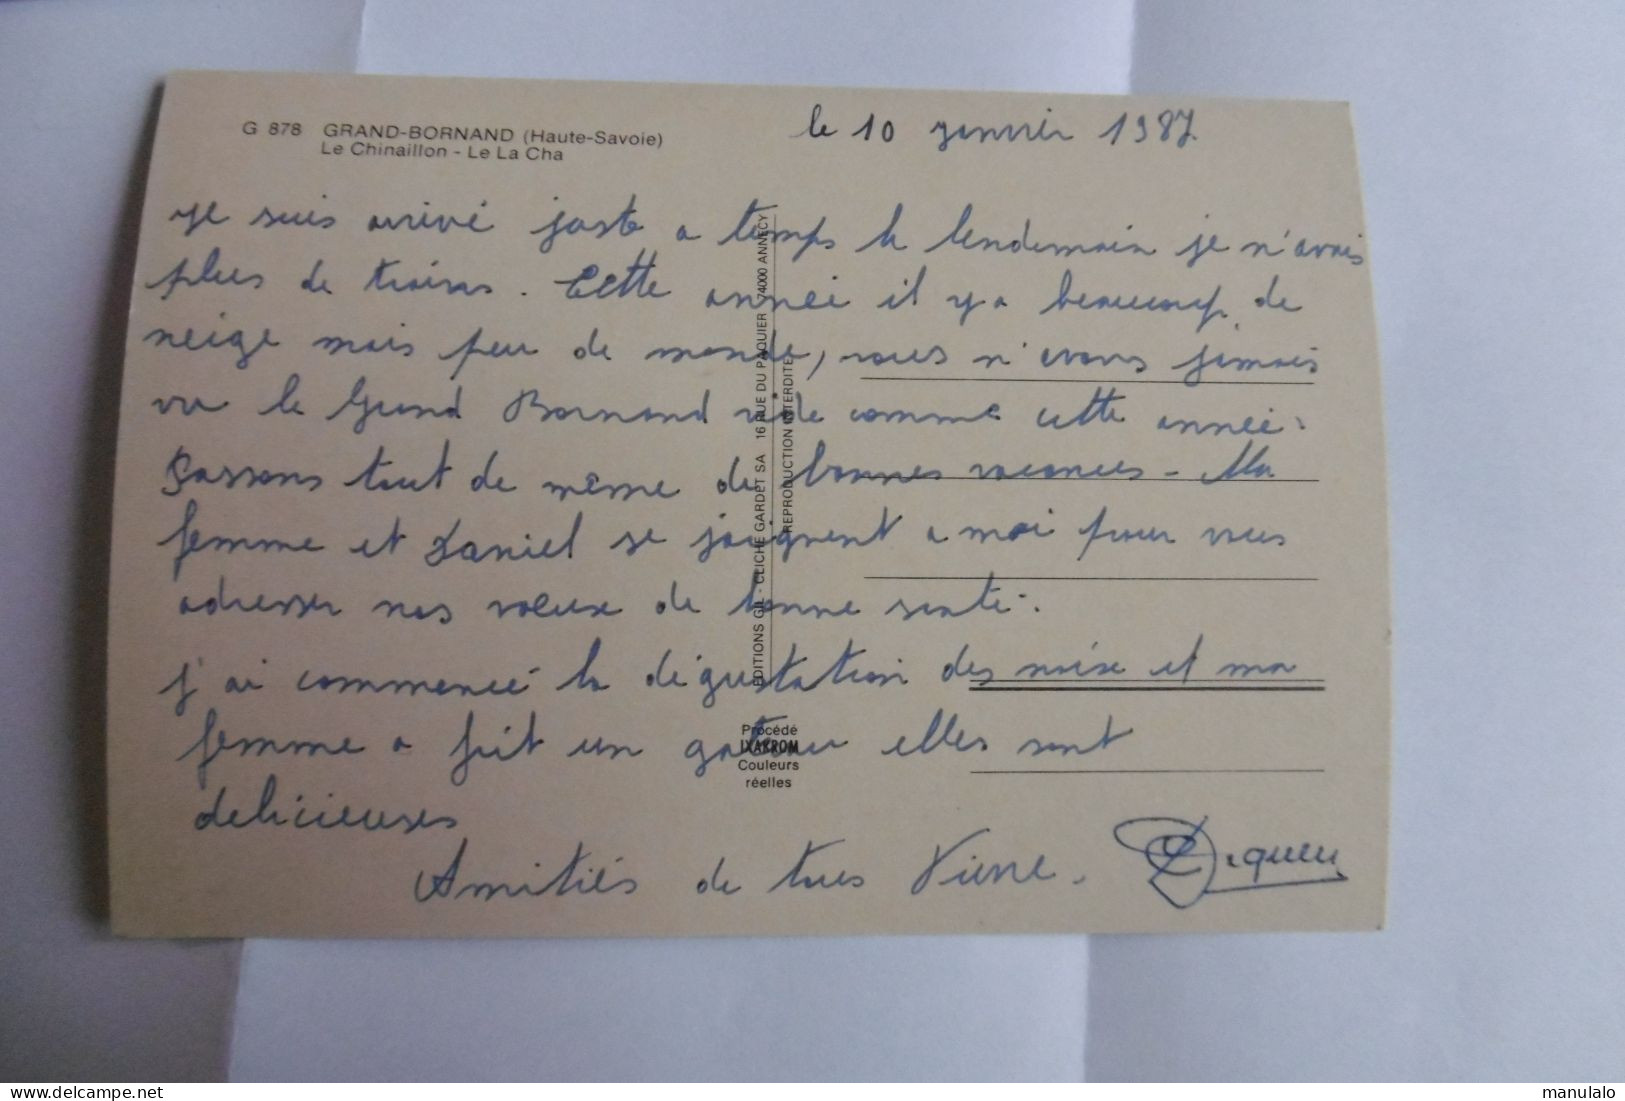 G 878 GRAND-BORNAND (Haute-Savoie)
Le Chinaillon - Le La Cha
le 10 janvier 1987
je suis arrivé juste a temps le lendemain je n'avais
plus de trains. Cette année il y a beaucoup de
neige mais peu de monde, nous n'avons jamais
vu le Grand Bornand vide comme cette année.
Passons tout de même de bonnes vacances - Ma
femme et Daniel se joignent a moi pour vous
adresser nos voeux de bonne santé.
j'ai commencé la dégustation des noix et ma
femme a fait un gateau elles sont
delicieuses
Amitiés de tous Pierre.
EDITIONS GIL - CLICHE GARDET SA 16 RUE DU PAQUIER 74000 ANNECY
REPRODUCTION INTERDITE
Procédé
IXAKROM
Couleurs
réelles
manulalo